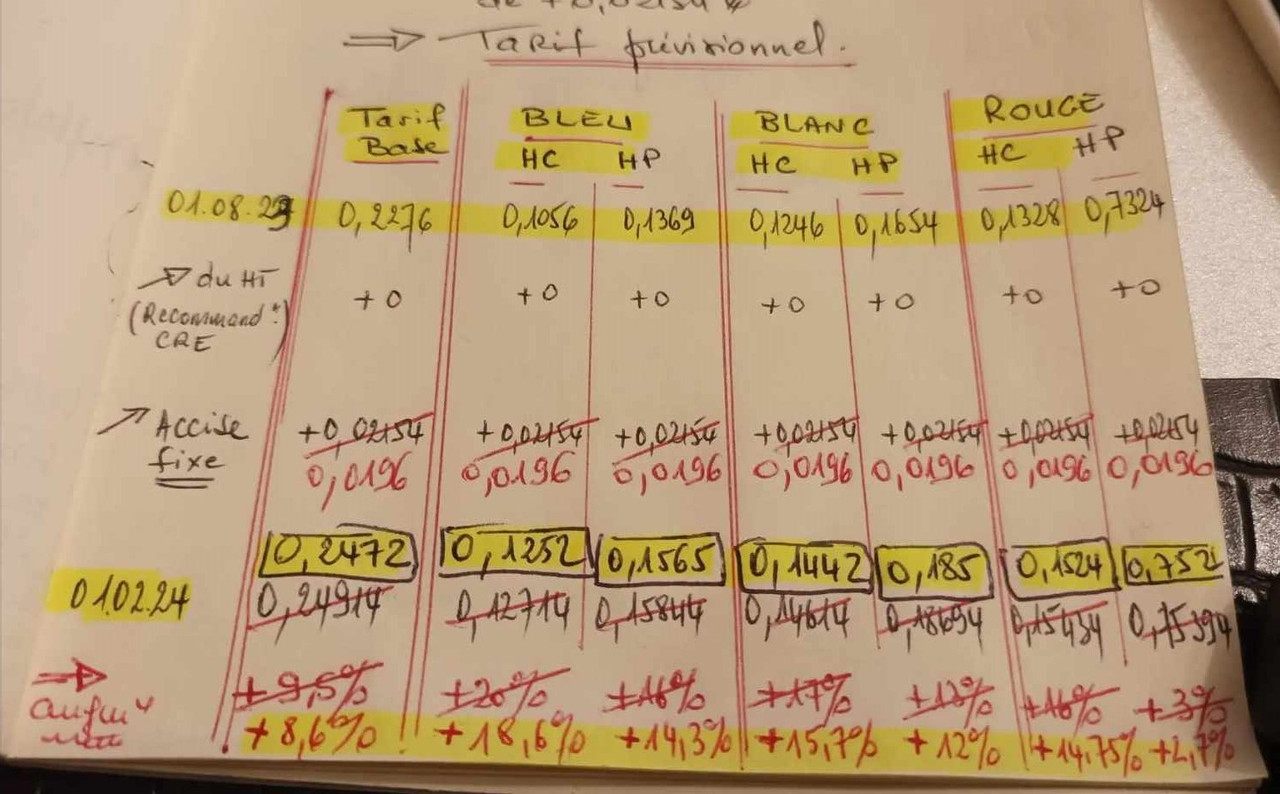 de +0,02154 €
⇒ Tarif prévisionnel.
Tarif Base BLEU BLANC ROUGE
HC HP HC HP HC HP
01.08.23 0,2276 0,1056 0,1369 0,1246 0,1654 0,1328 0,7324
↗ du HT +0 +0 +0 +0 +0 +0 +0
(Recommand°:)
CRE
↗ Accise +0,02154 +0,02154 +0,02154 +0,02154 +0,02154 +0,02154 +0,02154
fixe 0,0196 0,0196 0,0196 0,0196 0,0196 0,0196 0,0196
0,2472 0,1252 0,1565 0,1442 0,185 0,1524 0,752
01.02.24 0,24914 0,12714 0,15844 0,14614 0,18694 0,15434 0,75394
⇒ +9,5% +20% +16% +17% +13% +16% +3%
+8,6% +18,6% +14,3% +15,7% +12% +14,75% +2,7%